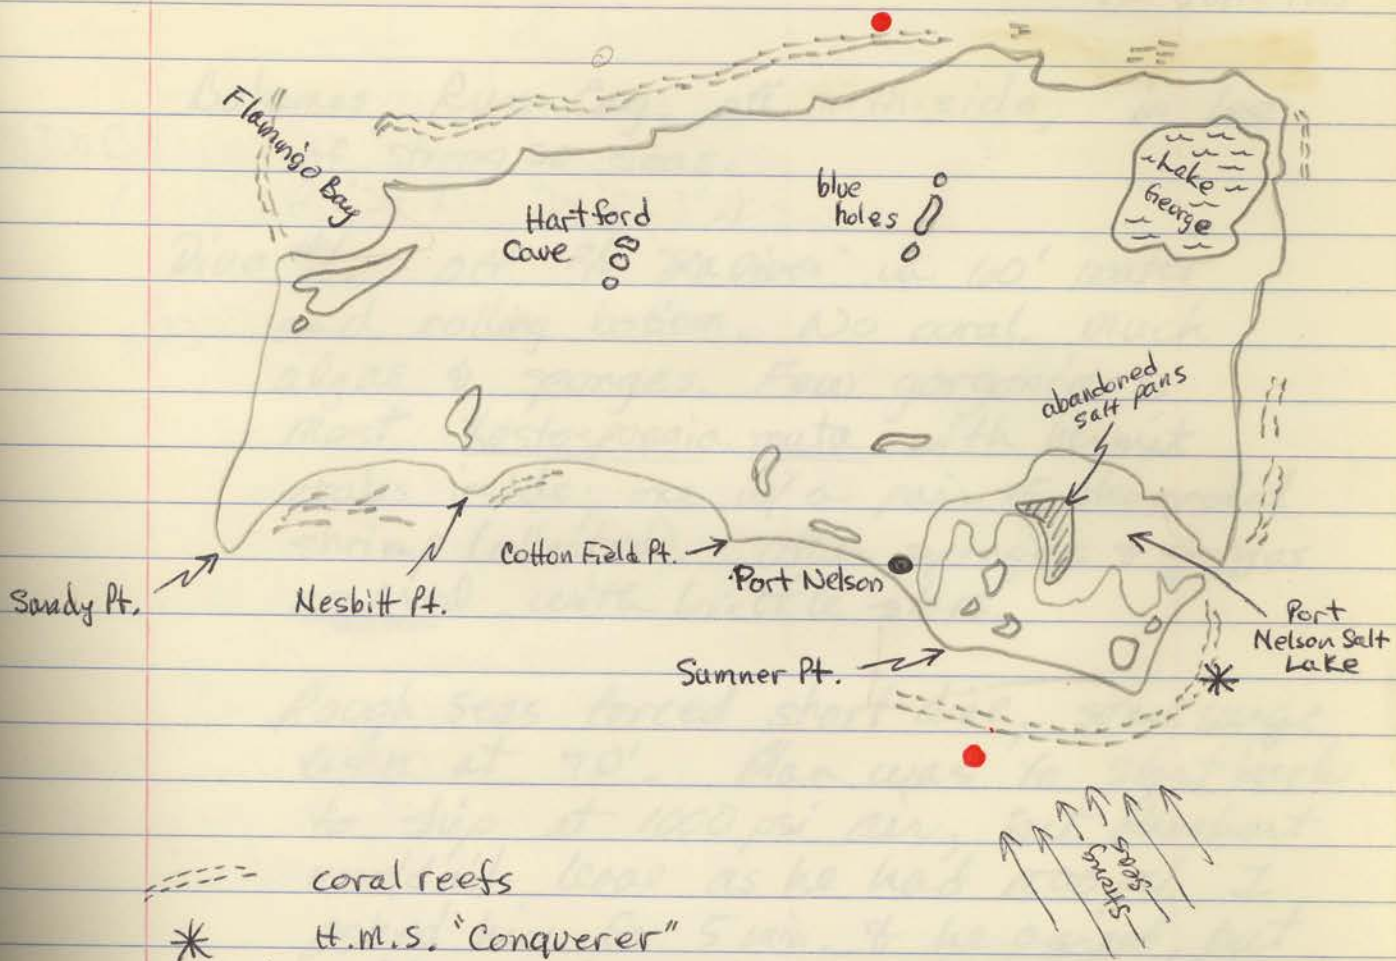 Flamingo Bay
Hartford
Cave
blue
holes
Lake
George
abandoned
salt pans
Sandy Pt.
Nesbitt Pt.
Cotton Field Pt.
Port Nelson
Sumner Pt.
Port
Nelson Salt
Lake
strong
seas
coral reefs
H.M.S. "Conquerer"